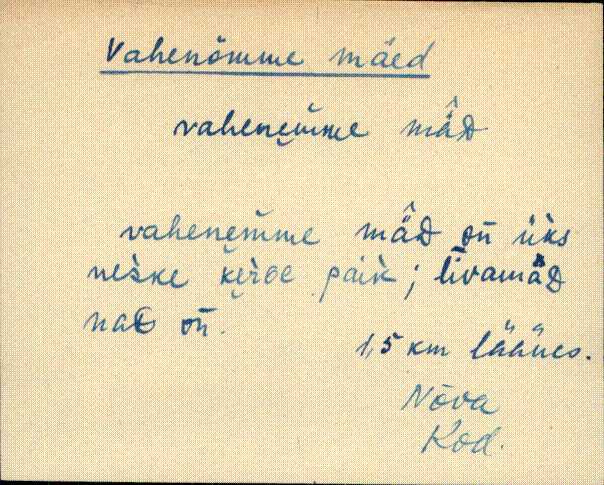 Vahenõmme mäed
vahenem̄me mä̂D
vahenem̄me mä̂D on̄ üks
neske kerGe paik; līvamäD
naD on̄.
1,5 km läänes.
Nõva
Kod.